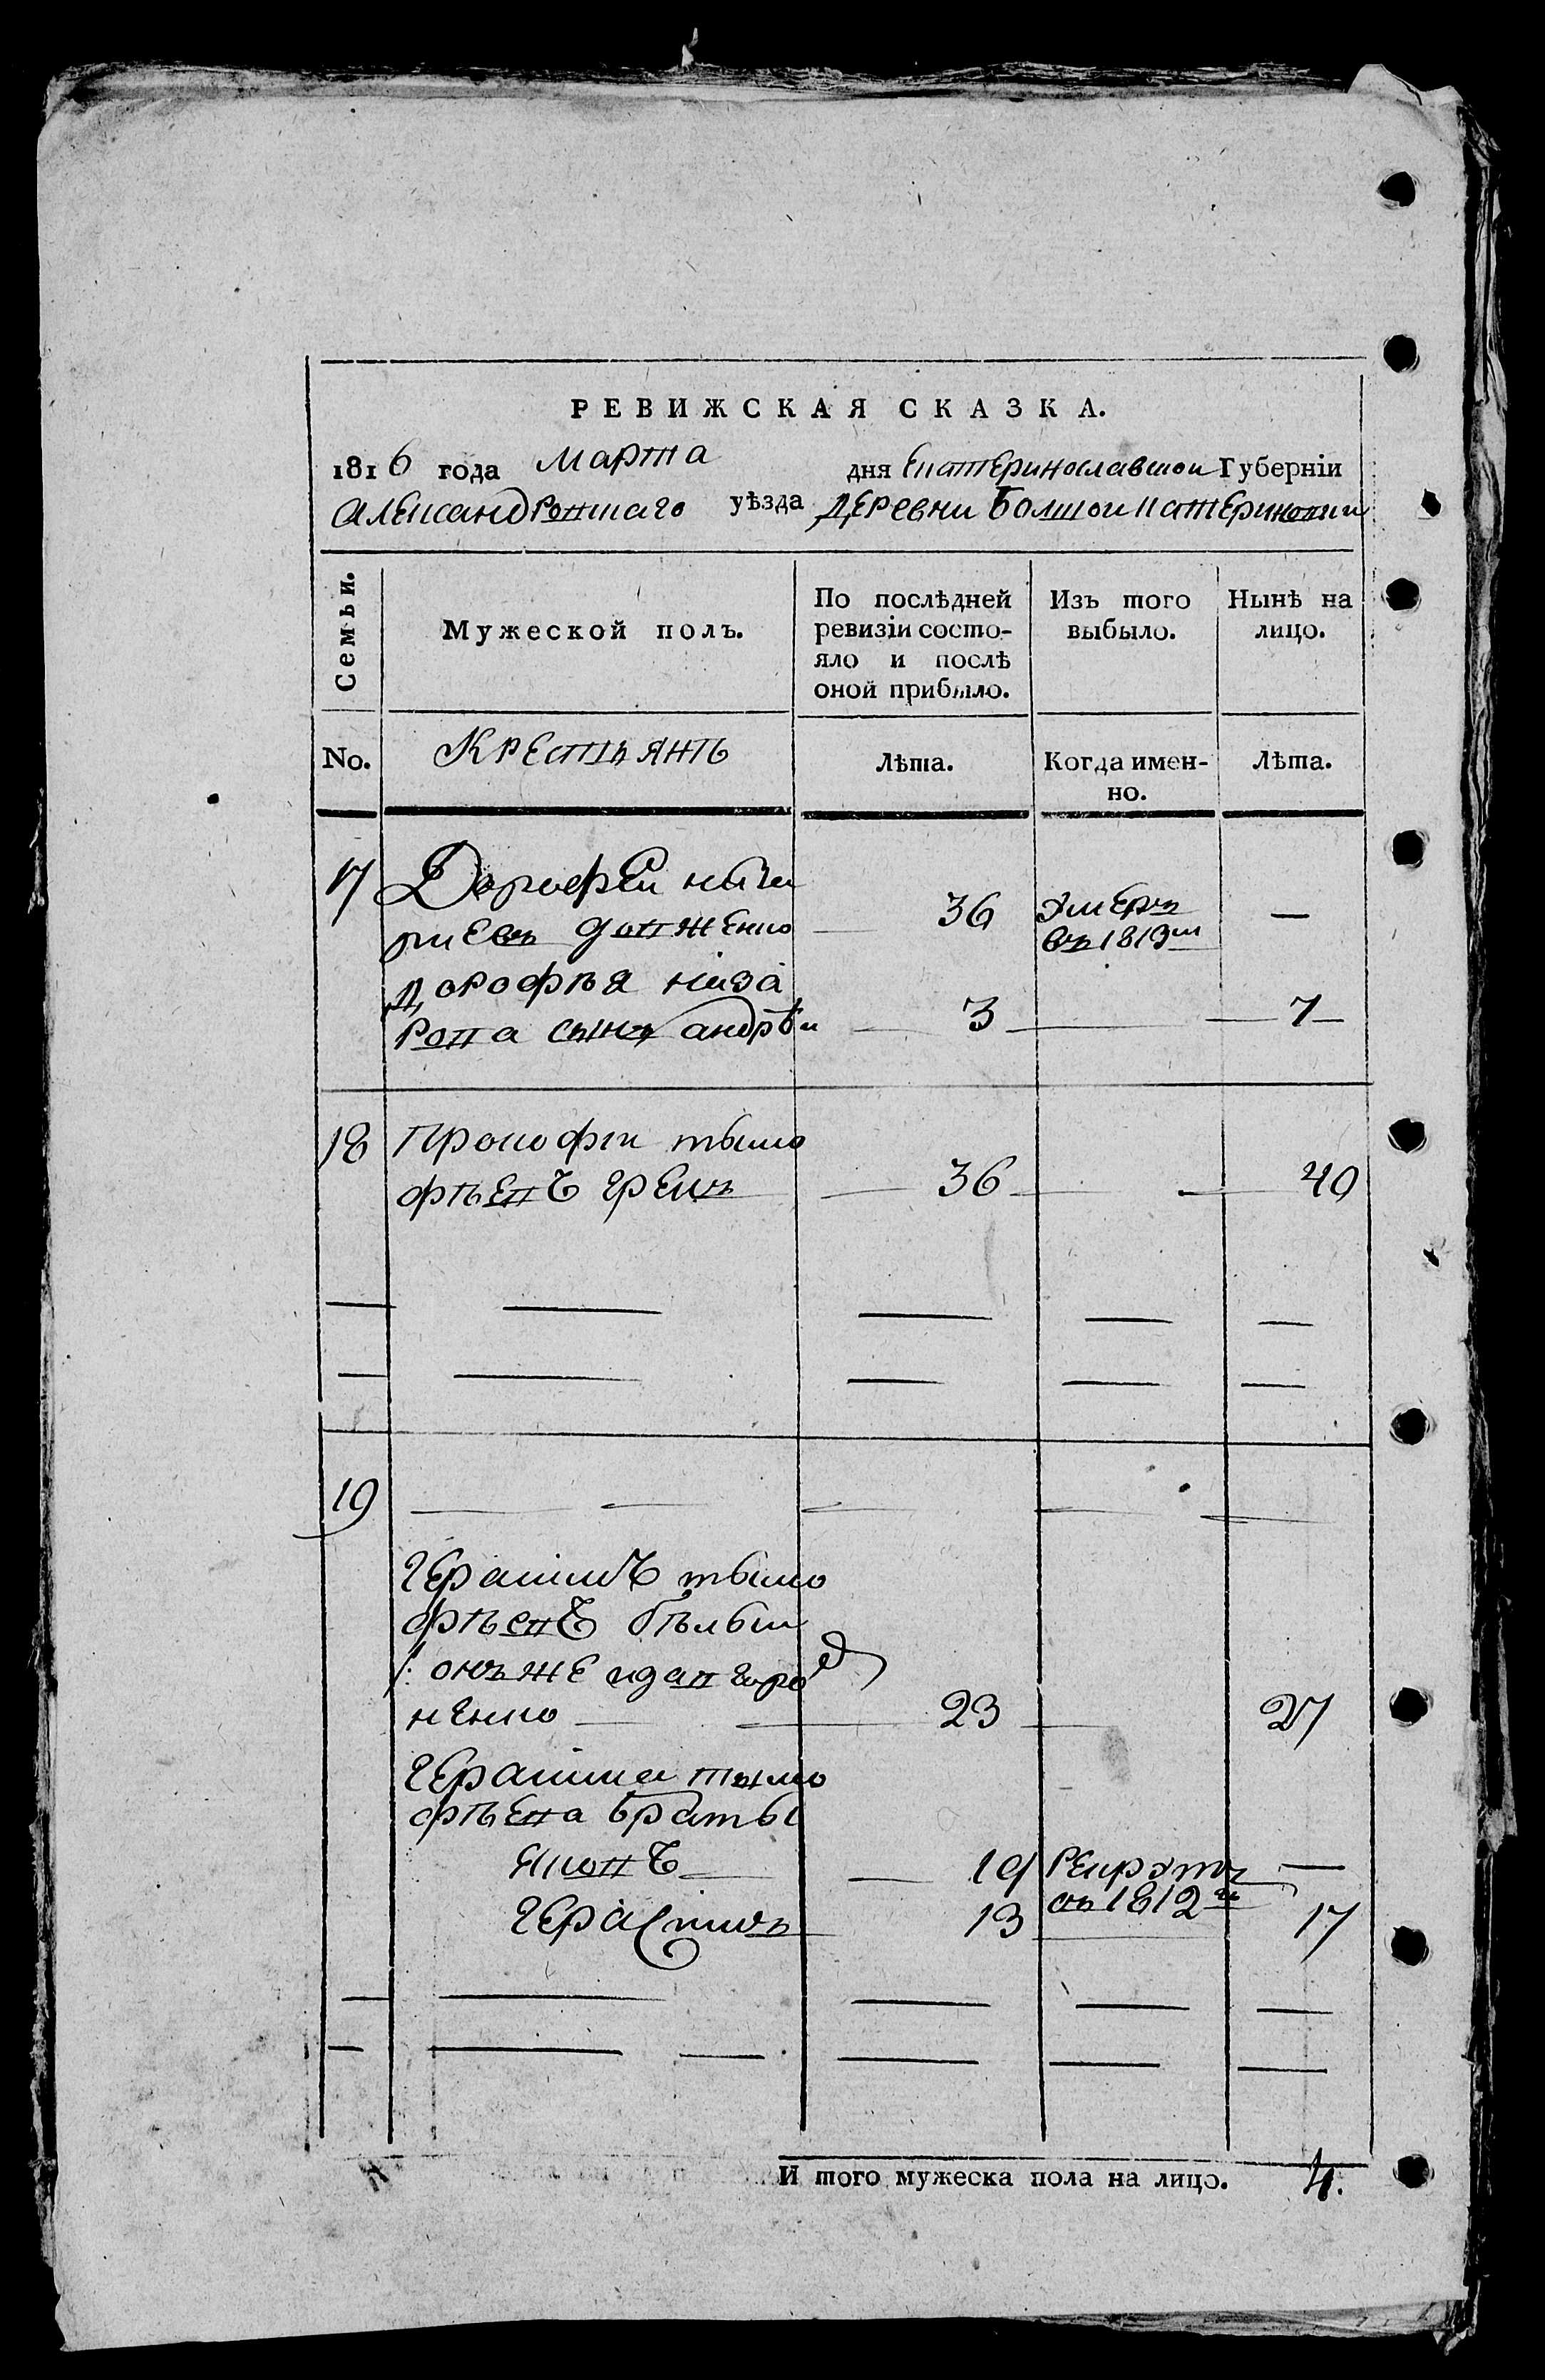 РЕВИЖСКАЯ СКАЗКА.
1816 года Марта дня Екатеринославской Губерніи
Александровскаго уѣзда Деревни Болшои катериновки
Семьи.
Мужеской полъ.
По послѣдней ревизіи состо-
яло и послѣ
оной прибыло.
Изъ того
выбыло.
Нынѣ на
лицо.
No.
Крестьянъ
Лѣта.
Когда имен-
но.
Лѣта.
17 Дорофеи
36 умеръ —
въ 1813м
дорофѣя наза
рова сынъ андрѣи 3 7
18 Прокофи тымо
фѣевъ грекъ 36 40
19
Герасимъ тымо
фѣевъ бѣлыи
/: онъ же
ненко 23 27
Герасима тымо
фѣева браты
яковъ 19 рекрутъ —
въ 1812м
Герасимъ 13 17
И того мужеска пола на лицо. 4.